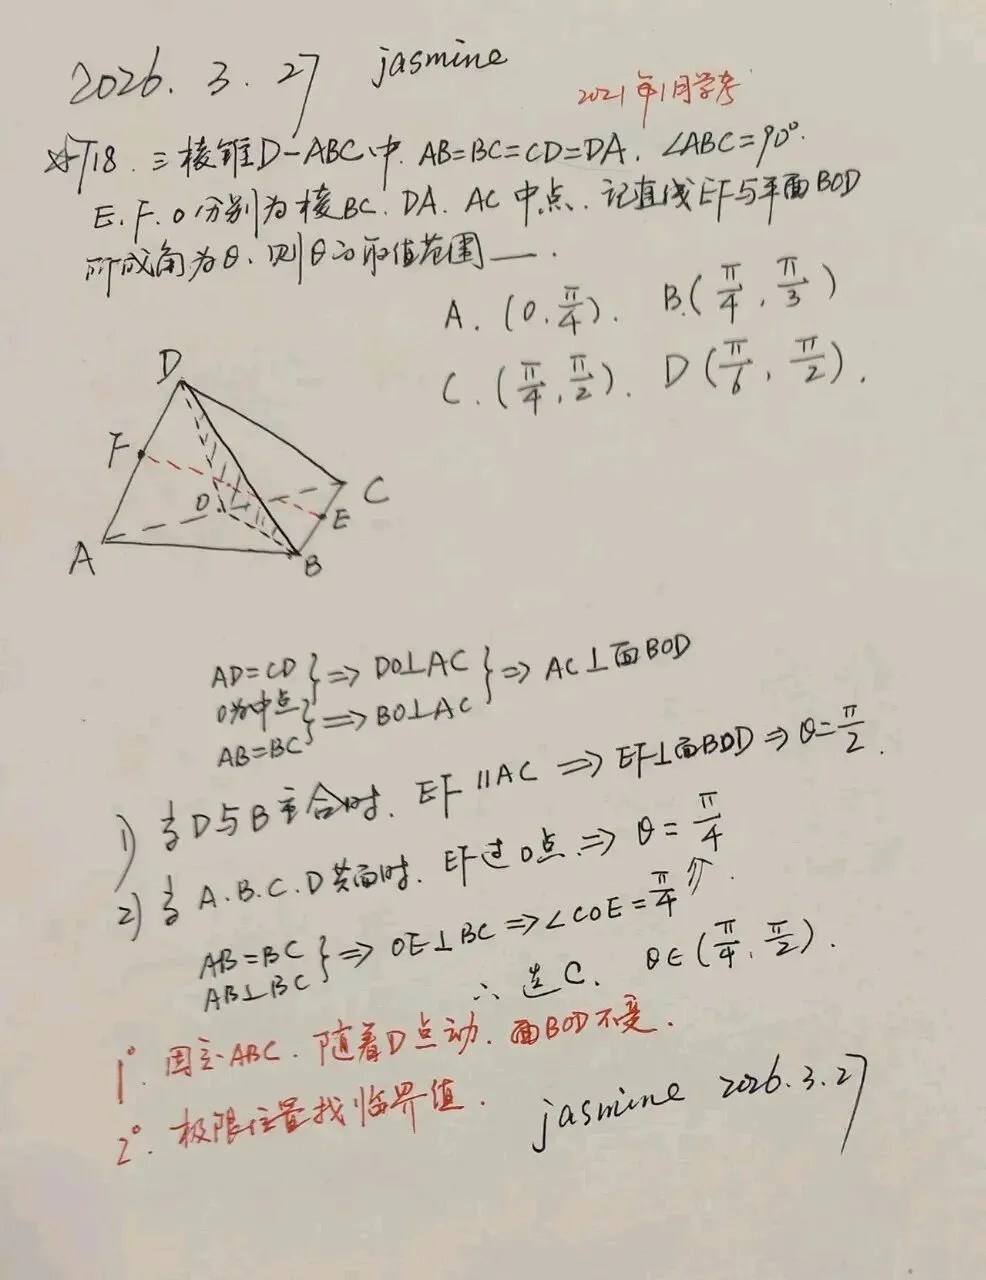 2026.3.27 jasmine
2021年1月学考
☆T18.三棱锥D-ABC中.AB=BC=CD=DA.∠ABC=90°.
E.F.O分别为棱BC.DA.AC中点.记直线EF与平面BOD
所成角为θ.则θ的取值范围___.
A.(0.π/4). B.(π/4,π/3)
C.(π/4,π/2). D(π/6,π/2).
D
F
O
C
E
A
B
AD=CD}⇒DO⊥AC}⇒AC⊥面BOD
O为中点
AB=BC}⇒BO⊥AC
1)当D与B重合时.EF∥AC⇒EF⊥面BOD⇒θ=π/2.
2)当A.B.C.D共面时.EF过O点.⇒θ=π/4
AB=BC
AB⊥BC}⇒OE⊥BC⇒∠COE=π/4⇗.
∴选C. θ∈(π/4,π/2).
1°.固定△ABC.随着D点动.面BOD不变.
2°.极限位置找临界值.
jasmine 2026.3.27